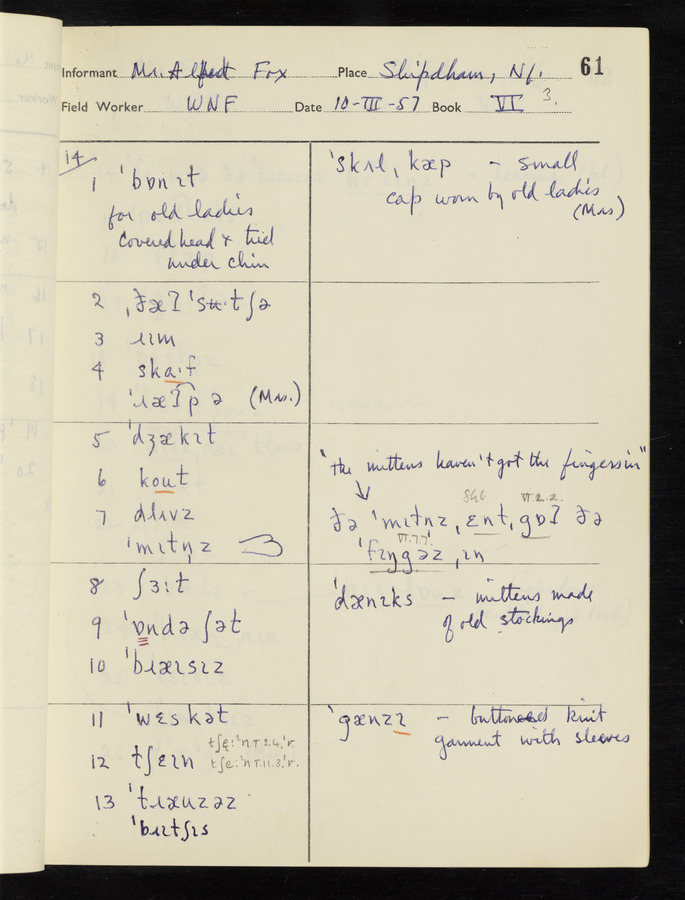 Informant Mr. Alfred Fox Place Shipdham, Nf. 61
Field Worker WNF Date 10-III-57 Book VI 3.
14
1 ˈbɒnɪt
for old ladies
covered head & tied
under chin
ˈskʌl ˌkæp – small
cap worn by old ladies
(Mrs)
2
3 ɹɪm
4 ska·f
(Mrs.)
5 ˈdʒækɪt
6 kout
7 ɡlɪvz
ˈmɪtn̩z
"the mittens haven't got the fingers in"
ðə ˈmɪtnz ˌɛnt ˌɡɒʔ ðə
VI.2.2.
VI.7.7.
ˈfɪŋɡəz ˌɪn
8 ʃɜːt
9 ˈɒndəʃət
10 ˈbɹæɪsɪz
ˈdænɪks – mittens made
of old stockings
11 ˈwɛskət
12 tʃɛɪn
13 ˈtɹæuzəz
ˈbɹɪtʃɪs
ˈɡænzɪ – buttoned knit
garment with sleeves